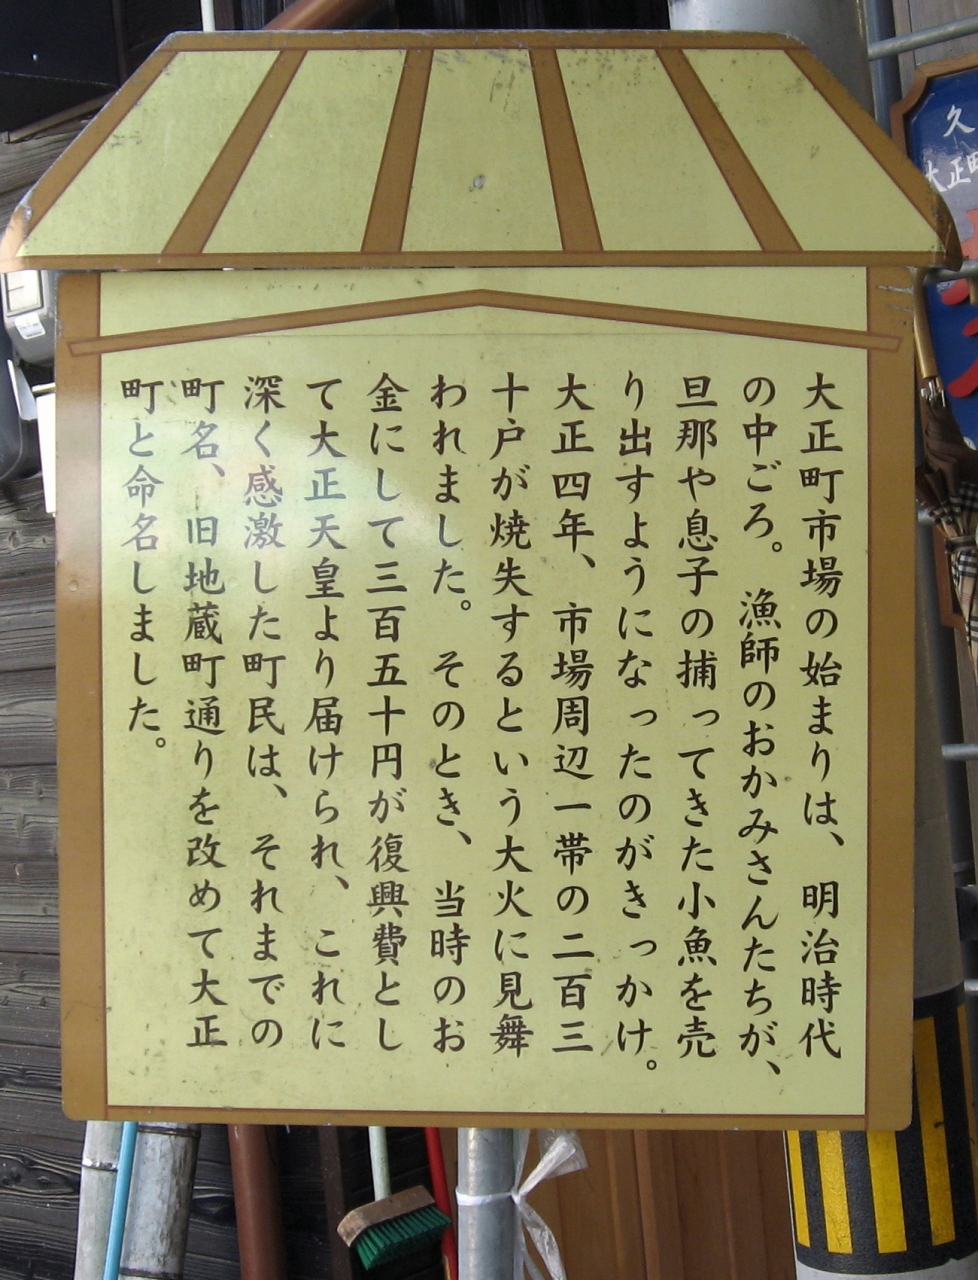 大正町市場の始まりは、明治時代
の中ごろ。漁師のおかみさんたちが、
旦那や息子の捕ってきた小魚を売
り出すようになったのがきっかけ。
大正四年、市場周辺一帯の二百三
十戸が焼失するという大火に見舞
われました。そのとき、当時のお
金にして三百五十円が復興費とし
て大正天皇より届けられ、これに
深く感激した町民は、それまでの
町名、旧地蔵町通りを改めて大正
町と命名しました。
久
大正町